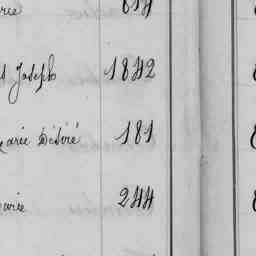 rie 614
s Joseph 1842
Marie Désiré 181
arie 244